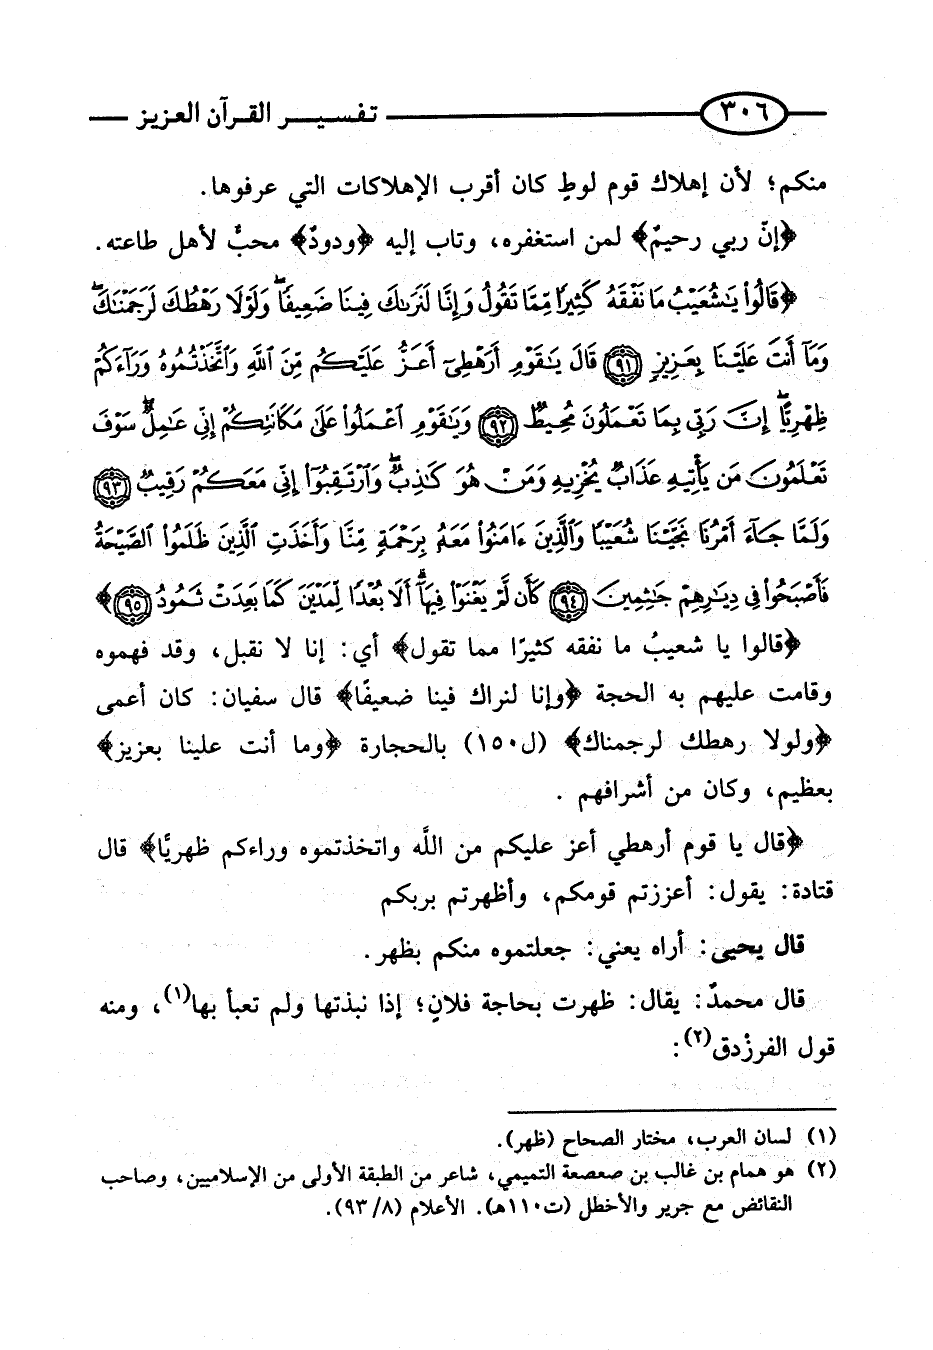 ٣٠٦ تفسيـر القـرآن العـزيز
منكم؛ لأن إهلاك قوم لوطٍ كان أقرب الإهلاكات التي عرفوها.
﴿إنّ ربي رحيمٌ﴾ لمن استغفره، وتاب إليه ﴿ودودٌ﴾ محبٌّ لأهل طاعته.
﴿قَالُوا۟ يَـٰشُعَيْبُ مَا نَفْقَهُ كَثِيرًا مِّمَّا تَقُولُ وَإِنَّا لَنَرَىٰكَ فِينَا ضَعِيفًا ۖ وَلَوْلَا رَهْطُكَ لَرَجَمْنَـٰكَ ۖ
وَمَآ أَنتَ عَلَيْنَا بِعَزِيزٍ ٩١ قَالَ يَـٰقَوْمِ أَرَهْطِىٓ أَعَزُّ عَلَيْكُم مِّنَ ٱللَّهِ وَٱتَّخَذْتُمُوهُ وَرَآءَكُمْ
ظِهْرِيًّا ۖ إِنَّ رَبِّى بِمَا تَعْمَلُونَ مُحِيطٌ ٩٢ وَيَـٰقَوْمِ ٱعْمَلُوا۟ عَلَىٰ مَكَانَتِكُمْ إِنِّى عَـٰمِلٌ ۖ سَوْفَ
تَعْلَمُونَ مَن يَأْتِيهِ عَذَابٌ يُخْزِيهِ وَمَنْ هُوَ كَـٰذِبٌ ۖ وَٱرْتَقِبُوٓا۟ إِنِّى مَعَكُمْ رَقِيبٌ ٩٣
وَلَمَّا جَآءَ أَمْرُنَا نَجَّيْنَا شُعَيْبًا وَٱلَّذِينَ ءَامَنُوا۟ مَعَهُۥ بِرَحْمَةٍ مِّنَّا وَأَخَذَتِ ٱلَّذِينَ ظَلَمُوا۟ ٱلصَّيْحَةُ
فَأَصْبَحُوا۟ فِى دِيَـٰرِهِمْ جَـٰثِمِينَ ٩٤ كَأَن لَّمْ يَغْنَوْا۟ فِيهَآ ۗ أَلَا بُعْدًا لِّمَدْيَنَ كَمَا بَعِدَتْ ثَمُودُ ٩٥﴾
﴿قالوا يا شعيبُ ما نفقه كثيرًا مما تقول﴾ أي: إنا لا نقبل، وقد فهموه
وقامت عليهم به الحجة ﴿وإنا لنراك فينا ضعيفًا﴾ قال سفيان: كان أعمى
﴿ولولا رهطك لرجمناك﴾ (ل١٥٠) بالحجارة ﴿وما أنت علينا بعزيز﴾
بعظيم، وكان من أشرافهم .
﴿قال يا قوم أرهطي أعز عليكم من اللَّه واتخذتموه وراءكم ظهريًّا﴾ قال
قتادة: يقول: أعززتم قومكم، وأظهرتم بربكم
قال يحيى: أراه يعني: جعلتموه منكم بظهر.
قال محمدٌ: يقال: ظهرت بحاجة فلانٍ؛ إذا نبذتها ولم تعبأ بها(١)، ومنه
قول الفرزْدق(٢):
(١) لسان العرب، مختار الصحاح (ظهر).
(٢) هو همام بن غالب بن صعصعة التميمي، شاعر من الطبقة الأولى من الإسلاميين، وصاحب
النقائض مع جرير والأخطل (ت١١٠هـ). الأعلام (٨/ ٩٣).